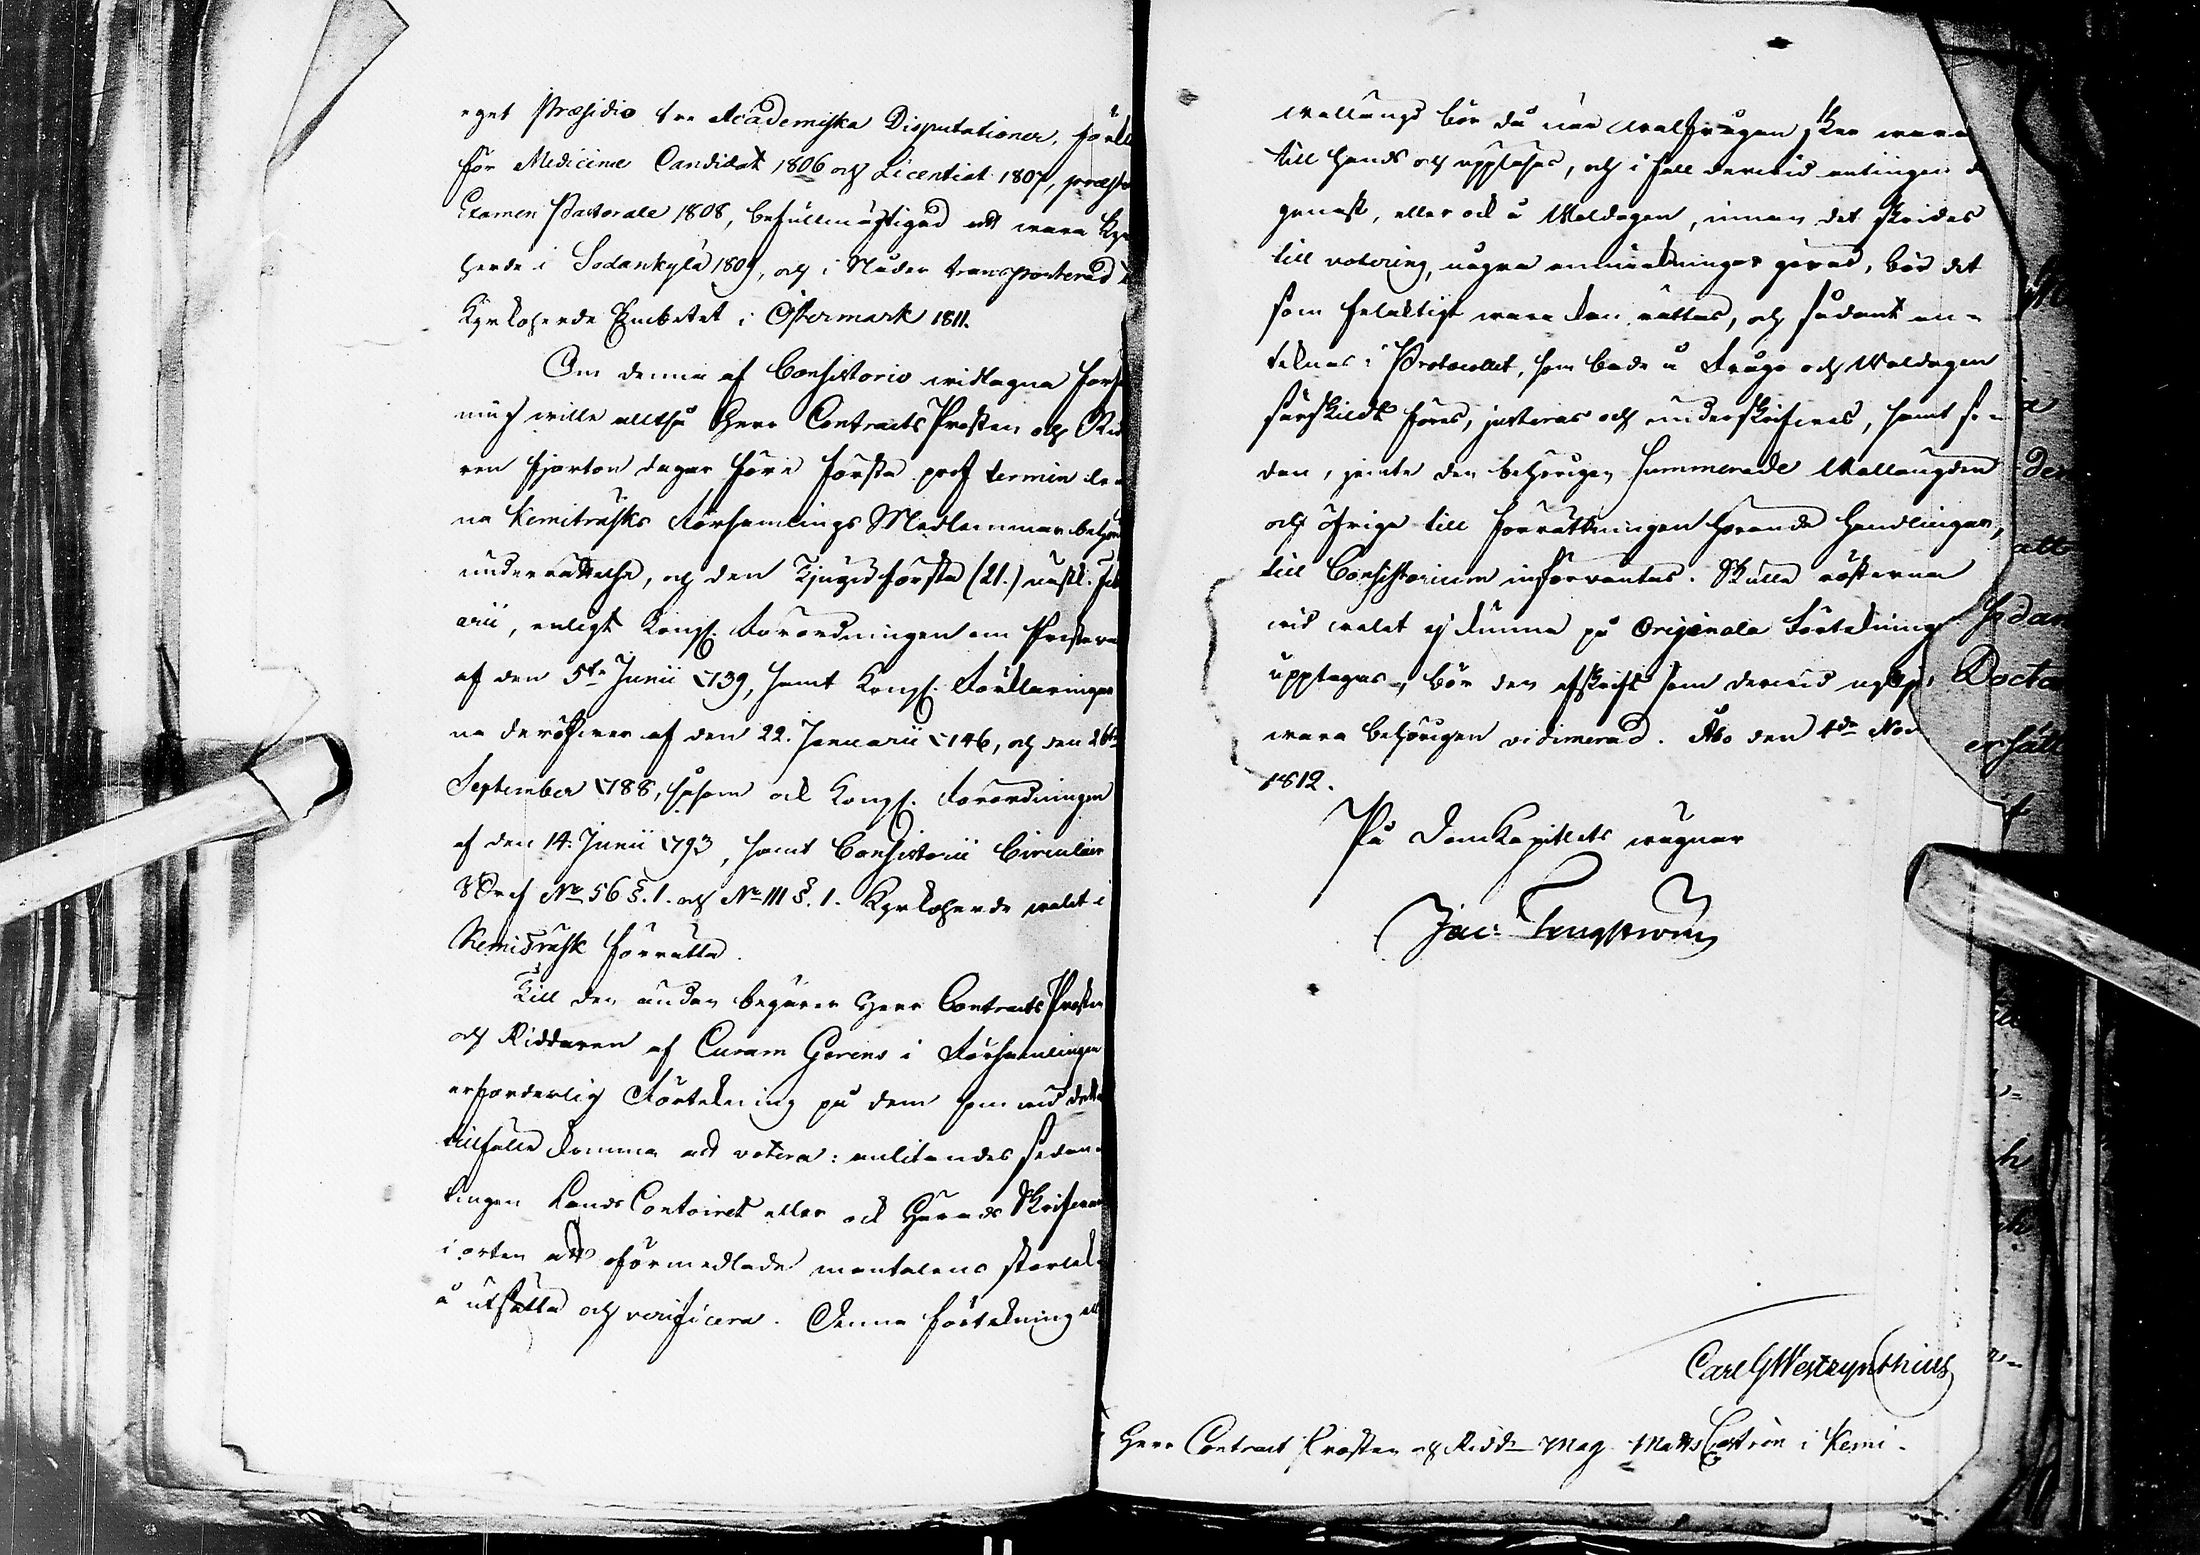 eget Præsidio tre Academiska Disputationer, förkla
för Medicinæ Candidat 1806 och Licentiat 1807, præste
Examen Pastorale 1808, befullmägtigad att wara Kyrko
herde i Sodankylä 1809, och i Nåder transporterad t
Kyrkoherde Embetet i Östermark 1811.
Om denna af Consistorio widtagna författ
ning wille alltså Herr Contracts Prosten och Rid
ren fjorton dagar före första prof termin lem
na Kemiträsks Församlings Medlemmar behör
underrättelse, och den Tjugu första (21.) nästk. Febru
arii, enligt Kongl. Förordningen om Prestewal
af den 5te Junii 1739, samt Kongl. Förklaringar
na deröfwer af den 22. Januarii 1746, och den 26te
September 1788, såsom ock Kongl. Förordningen
af den 14. Junii 1793, samt Consistorii Circulair
Bref No 56 §. 1. och No 111 §. 1. Kyrkoherde walet i
Kemiträsk förrätta.
Till den ändan begärer Herr Contracts Prosten
och Riddaren af Curam Gerens i Församlingen
erforderlig Förtekning på dem som wid detta
tillfälle komma att votera: anlitandes sedan
tingen Lands Contoiret eller ock Härads Skrifwaren
i orten att oförmedlade mantalens storlek der
å utsätta och verificera. Denna förtekning ell
wallängd bör då när walfrågan sker wara
till hands och uppläsas, och i fall derwid antingen då
genast, eller ock å Waldagen, innan det skrides
till votering, några anmärkningar göras, bör det
som felaktigt wara kan rättas, och sådant an-
teknas i Protocollet, som både å Frågo och Waldagen
särskildt föres, justeras och underskrifwes, samt se-
dan, jemte den behörigen summerade Wallängden
och öfrige till förrättningen hörande handlingar,
till Consistorium insörvantas. Skulle rösterna
wid walet ej kunna på Originala Förtekning
upptagas, bör den afskrift som derwid nyttj
wara behörigen vidimerad. Åbo den 4de Nov
1812.
På DomKapitlets wägnar
Jac: Tengström
Carl G Westzynthius
Herr Contract Prosten och Ridd. Mag. Matts Castrén i Kemi.